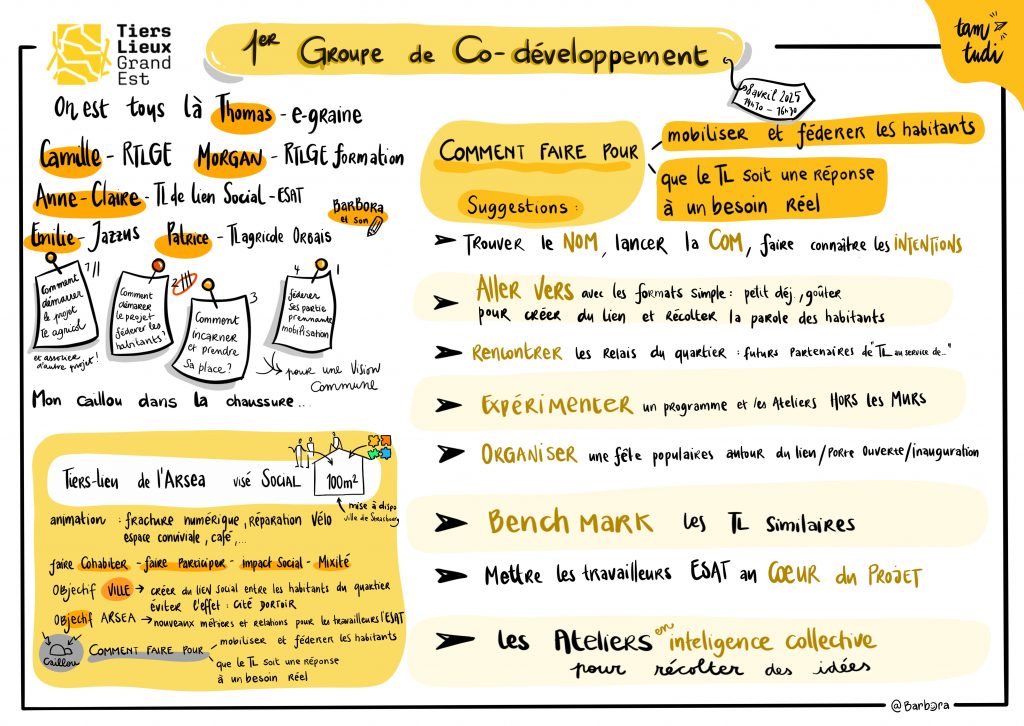 Tiers
Lieux
Grand
Est
1er Groupe de Co-développement
tam
tudi
8 avril 2025
14h30 - 16h30
On est tous là Thomas - e-graine
Camille - RTLGE Morgan - RTLGE formation
Anne-Claire - TL de lien Social - ESAT
Emilie - Jazzus Patrice - TL agricole Orbais
Barbora
et son
1 //
Comment
démarrer
le projet
TL agricol
et associer
d'autre projet!
2
Comment
démarer
le projet
féderer les
habitants?
3
Comment
incarner
et prendre
sa place?
4 1
féderer
ses partie
prennante
mobilisation
→ pour une vision
Commune
Mon caillou dans la chaussure...
Tiers-lieu de l'Arsea visé Social
100m²
mise à dispo
ville de Strasbourg
animation : fracture numérique, réparation Vélo
espace conviviale, café,...
faire Cohabiter - faire Participer - impact Social - Mixité
Objectif Ville → créer du lien social entre les habitants du quartier
éviter l'effet : cité dortoir
Objectif ARSEA → nouveaux métiers et relations pour les travailleurs l'ESAT
Caillou
Comment faire pour
mobiliser et féderer les habitants
que le TL soit une réponse
à un besoin réel
Comment faire pour
mobiliser et féderer les habitants
que le TL soit une réponse
à un besoin réel
Suggestions :
➤ Trouver le NOM, lancer la COM, faire connaître les intentions
➤ Aller vers avec les formats simple : petit déj., goûter
pour créer du lien et récolter la parole des habitants
➤ Rencontrer les relais du quartier : futurs partenaires de "TL au service de..."
➤ Expérimenter un programme et les Ateliers HORS les MURS
➤ Organiser une fête populaires autour du lien/Porte Ouverte/inauguration
➤ Bench mark les TL similaires
➤ Mettre les travailleurs ESAT au Coeur du Projet
➤ Les Ateliers en inteligence collective
pour récolter des idées
@Barbora